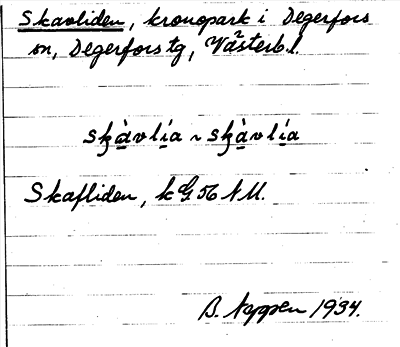 Skavliden, kronopark i Degerfors
sn, Degerfors tg, Västerb. l.
skàvlía ~ skàvlía
Skafliden, k G 56 N M.
B. 1934.